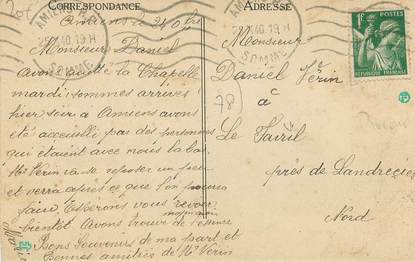 CORRESPONDANCE
ADRESSE
Amiens le 24
Monsieur Daniel
avons quitté la Chapelle
mardi sommes arrivés
hier soir a Amiens avons
été acceuilli par des personnes
qui étaient avec nous la bas
Mr Vérin va se reposer un peu
et verra après ce que l'on pourra
faire Espérons vous revoir
bientôt Avons trouvé de l'essence
Bons Souvenirs de ma part et
Bonnes amitiés de Mr Vérin
Maria
Monsieur
Daniel Vérin
à
Le Favril
près de Landrecies
Nord
78
AMIENS
40.19H
SOMME
AMIENS
40.19H
SOMME
1F
POSTES
REPUBLIQUE FRANÇAISE